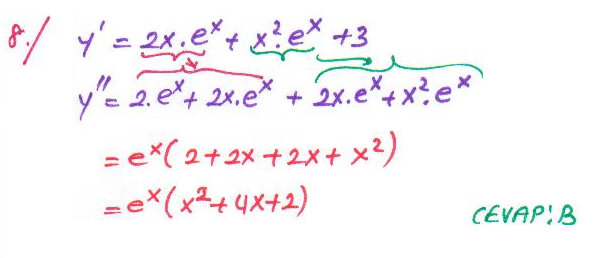 8./ y' = 2x.eˣ + x².eˣ + 3
y'' = 2.eˣ + 2x.eˣ + 2x.eˣ + x².eˣ
= eˣ(2 + 2x + 2x + x²)
= eˣ(x² + 4x + 2)
CEVAP: B